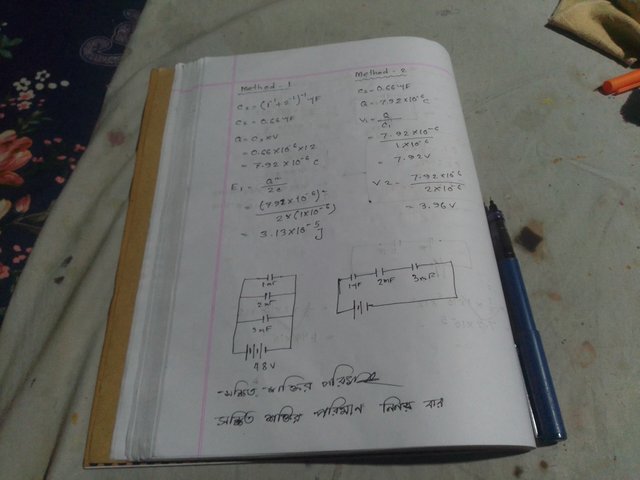 Method - 1
Cs = (1⁻¹+2⁻¹)⁻¹ μF
Cs = 0.66 μF
Q = Cs×V
= 0.66×10⁻⁶×12
= 7.92×10⁻⁶ C
E₁ = Q²/2C
= (7.92×10⁻⁶)²/2×(1×10⁻⁶)
= 3.13×10⁻⁵ J
Method - 2
Cs = 0.66 μF
Q = 7.92×10⁻⁶ C
V₁ = Q/C₁
= 7.92×10⁻⁶/1×10⁻⁶
= 7.92 V
V2 = 7.92×10⁻⁶/2×10⁻⁶
= 3.96 V
1mF
2mF
3mF
48V
1MF
2mF
3mF
সঞ্চিত শক্তির
সঞ্চিত শক্তির পরিমান নির্ণয় কর